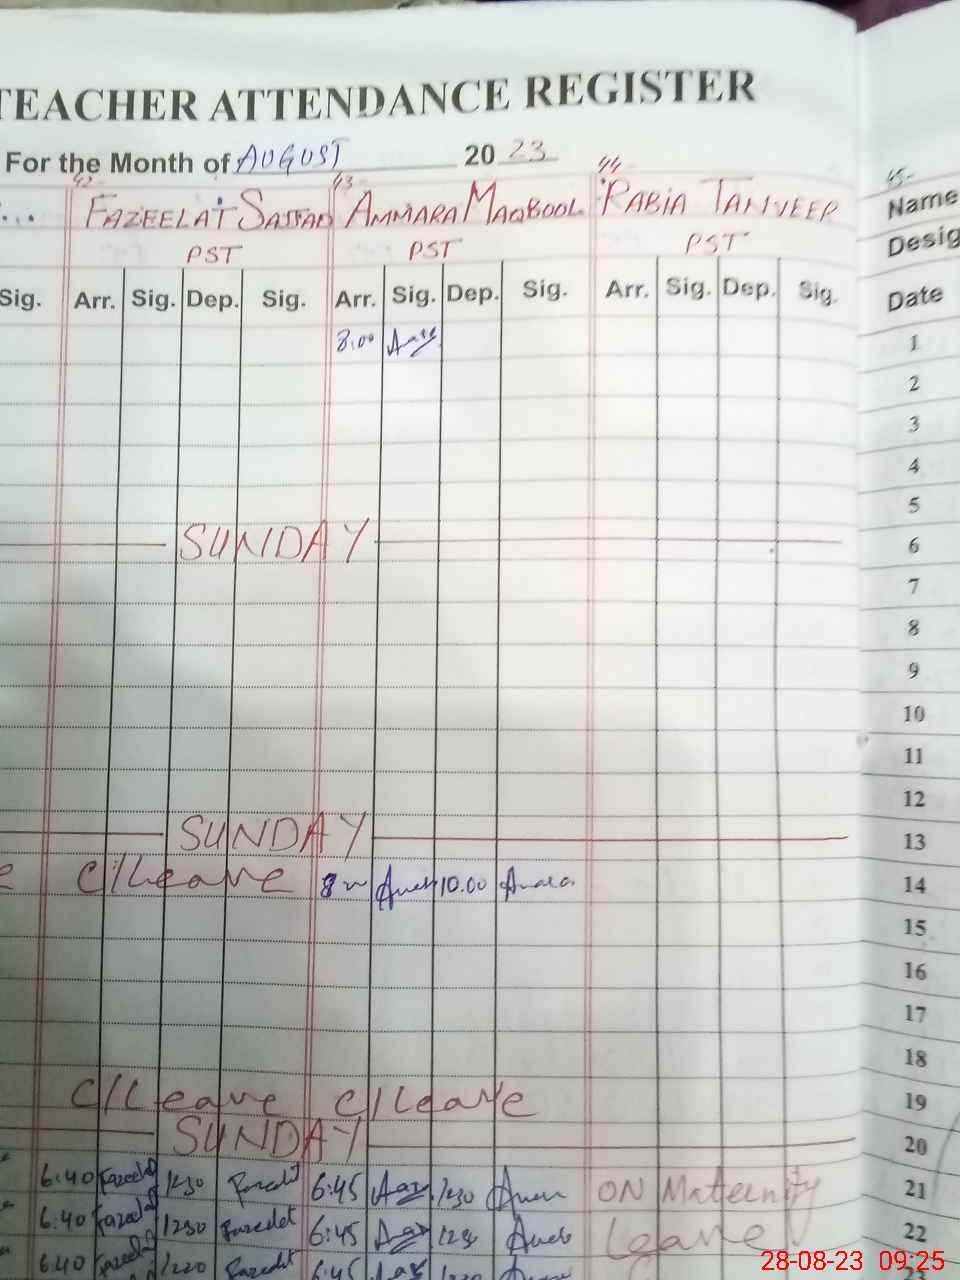 TEACHER ATTENDANCE REGISTER
For the Month of AUGUST 20 23
42- 43- 44 45-
... FAZEELAT SAJJAD AMMARA MAQBOOL RABIA TANVEER Name
PST PST PST Desig
Sig. Arr. Sig. Dep. Sig. Arr. Sig. Dep. Sig. Arr. Sig. Dep. Sig. Date
8.00 1
2
3
4
5
SUNDAY 6
7
8
9
10
11
12
SUNDAY 13
C/Leave 10.00 14
15
16
17
18
C/Leave C/Leave 19
SUNDAY 20
6:40 Fazeelat 1230 Fazeelat 6:45 1230 ON Matternity 21
6:40 Fazeelat 1230 Fazeelat 6:45 1230 Leave 22
6:40 Fazeelat 1230 Fazeelat 6:45
28-08-23 09:25